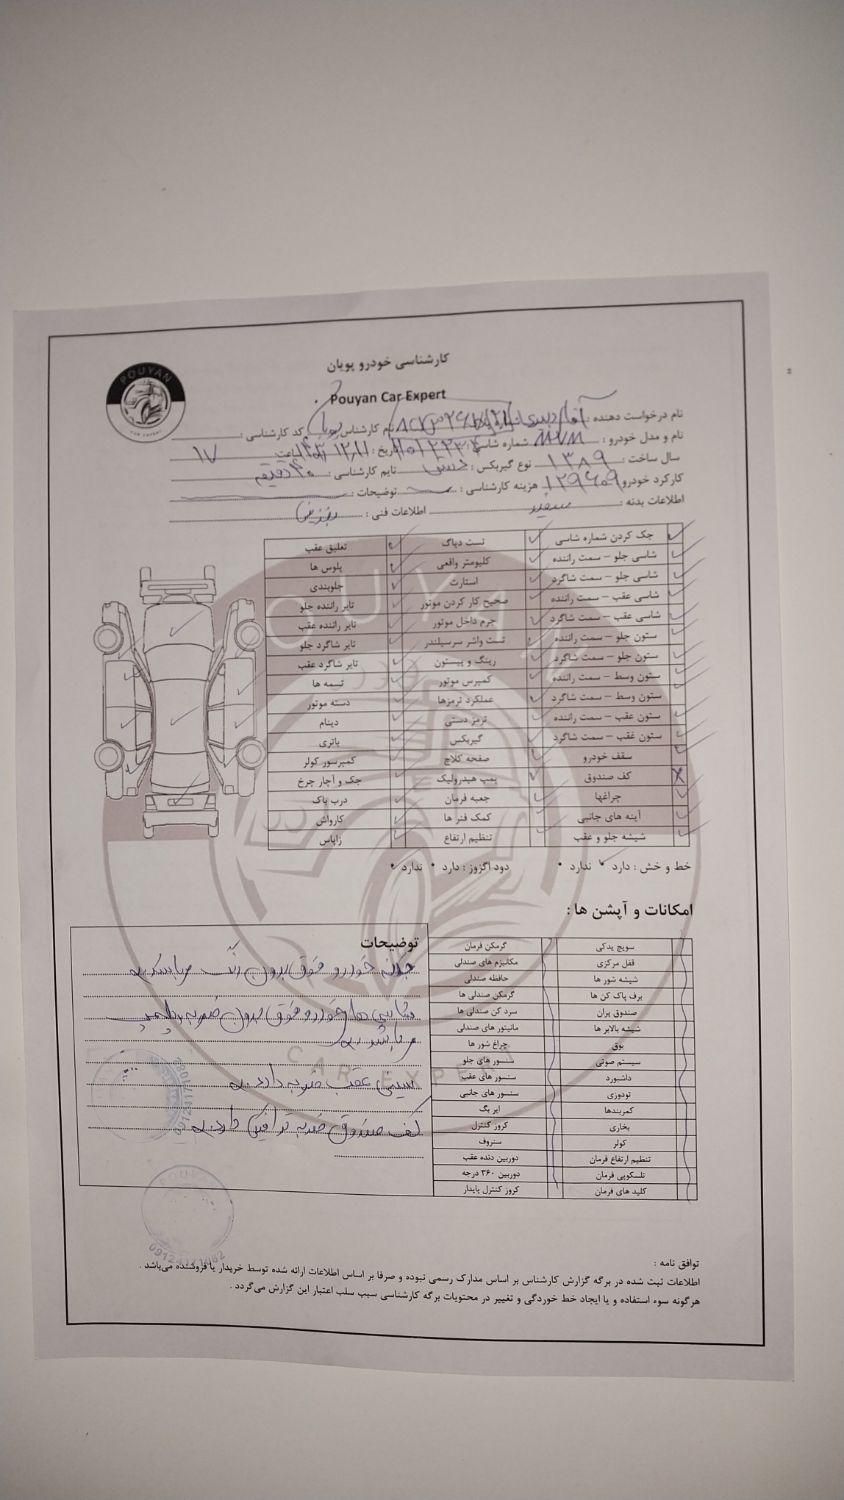 کارشناسی خودرو پویان
Pouyan Car Expert
POUYAN
CAR EXPERT
نام درخواست دهنده : کد کارشناسی :
نام و مدل خودرو : MVM شماره شاسی : تاریخ : ۱۷
سال ساخت : ۱۳۸۹ نوع گیربکس : تایم کارشناسی : ۴۰ دقیقه
کارکرد خودرو ۱۲۹۶۰۹ هزینه کارشناسی : توضیحات :
اطلاعات بدنه : سفید اطلاعات فنی : بنزین
چک کردن شماره شاسی تست دیاگ تعلیق عقب
شاسی جلو – سمت راننده کلیومتر واقعی پلوس ها
شاسی جلو – سمت شاگرد استارت جلوبندی
شاسی عقب – سمت راننده صحیح کار کردن موتور تایر راننده جلو
شاسی عقب – سمت شاگرد جرم داخل موتور تایر راننده عقب
ستون جلو – سمت راننده تست واشر سرسیلندر تایر شاگرد جلو
ستون جلو – سمت شاگرد رینگ و پیستون تایر شاگرد عقب
ستون وسط – سمت راننده کمپرس موتور تسمه ها
ستون وسط – سمت شاگرد عملکرد ترمزها دسته موتور
ستون عقب – سمت راننده ترمز دستی دینام
ستون عقب – سمت شاگرد گیربکس باتری
سقف خودرو صفحه کلاچ کمپرسور کولر
کف صندوق پمپ هیدرولیک جک و آچار چرخ
چراغها جعبه فرمان درب باک
آینه های جانبی کمک فنر ها کارواش
شیشه جلو و عقب تنظیم ارتفاع زاپاس
خط و خش : دارد • ندارد • دود اگزوز : دارد • ندارد •
امکانات و آپشن ها :
سویچ یدکی گرمکن فرمان
قفل مرکزی مکانیزم های صندلی
شیشه شور ها حافظه صندلی
برف پاک کن ها گرمکن صندلی ها
صندوق پران سرد کن صندلی ها
شیشه بالابر ها مانیتور های صندلی
بوق چراغ شور ها
سیستم صوتی سنسور های جلو
داشبورد سنسور های عقب
تودوزی سنسور های جانبی
کمربندها ایر بگ
بخاری کروز کنترل
کولر سنروف
تنظیم ارتفاع فرمان دوربین دنده عقب
تلسکوپی فرمان دوربین ۳۶۰ درجه
کلید های فرمان کروز کنترل پایدار
توضیحات
بدنه خودرو فوق بدون رنگ میباشد
شاسی ها خودرو فوق بدون ضربه و پلمپ
میباشد
سینی عقب ضربه دارد
کف صندوق ضربه ترافیکی دارد
توافق نامه :
اطلاعات ثبت شده در برگه گزارش کارشناس بر اساس مدارک رسمی نبوده و صرفا بر اساس اطلاعات ارائه شده توسط خریدار یا فروشنده می‌باشد .
هرگونه سوء استفاده و یا ایجاد خط خوردگی و تغییر در محتویات برگه کارشناسی سبب سلب اعتبار این گزارش می‌گردد .